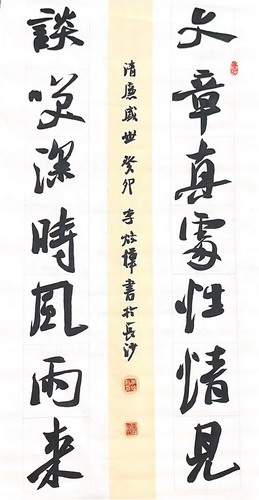 文章真處性情見
清廉盛世 癸卯 李書於長沙
談咲深時風雨来